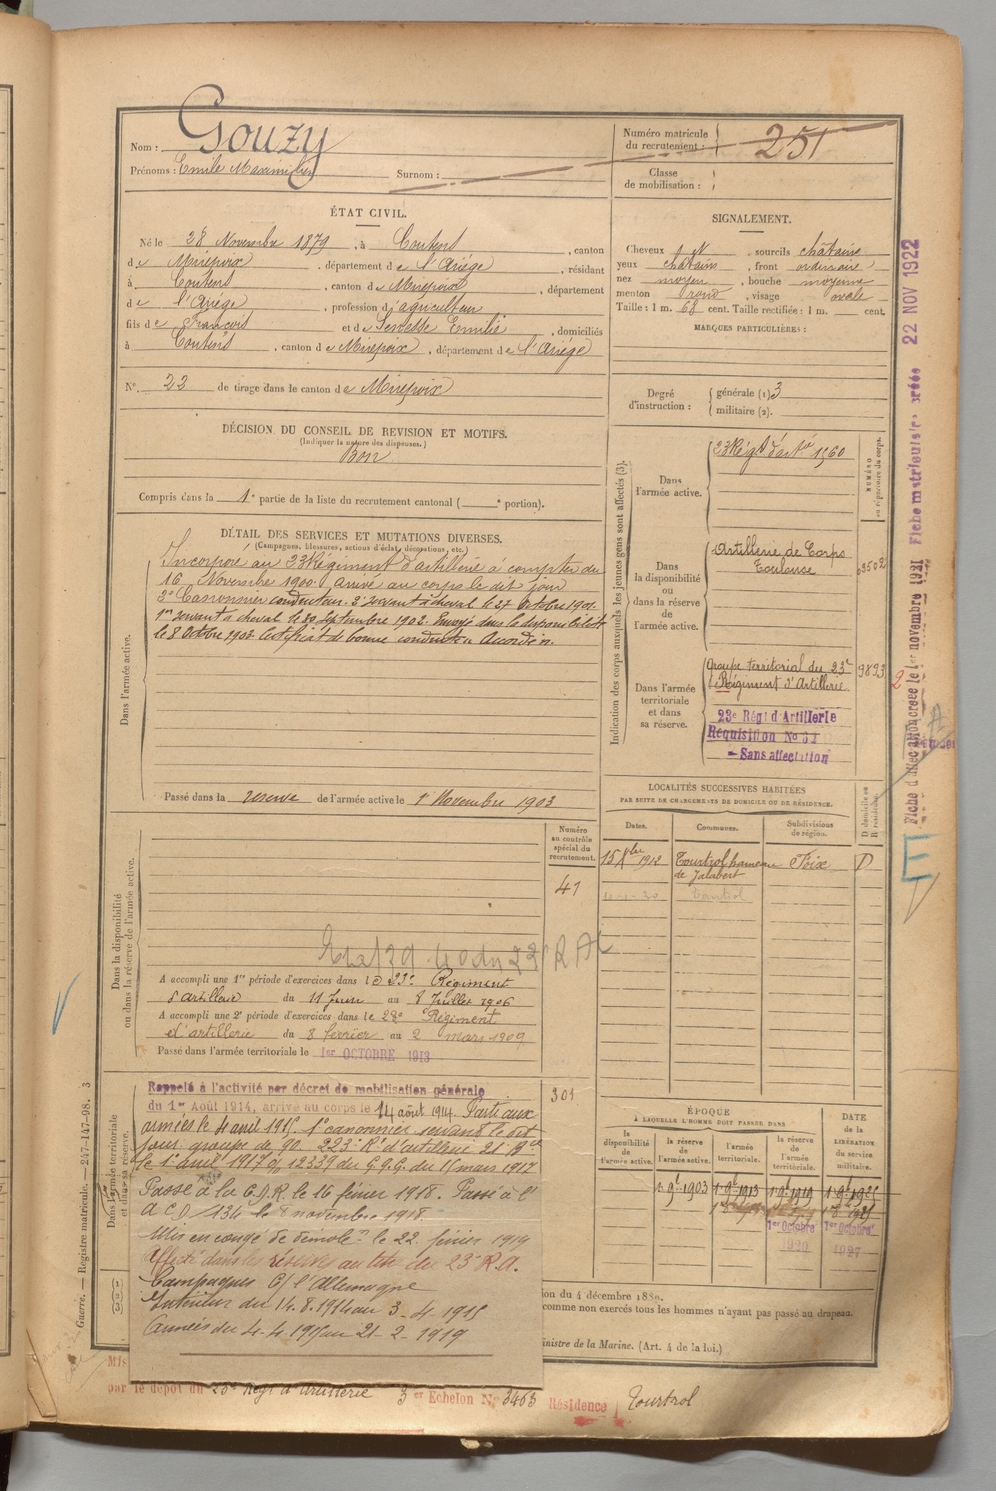 Nom : Gouzy
Prénoms : Emile Maximilien Surnom :
Numéro matricule du recrutement : 251
Classe de mobilisation :
ÉTAT CIVIL.
Né le 28 Novembre 1879, à Coutens, canton
de Mirepoix, département de l'Ariége, résidant
à Coutens, canton de Mirepoix, département
de l'Ariége, profession d'agriculteur
fils de François et de Senesse Emilie, domiciliés
à Coutens, canton de Mirepoix, département de l'Ariége
N° 23 de tirage dans le canton de Mirepoix
SIGNALEMENT.
Cheveux N, sourcils châtains
yeux châtains, front ordinaire
nez moyen, bouche moyenne
menton rond, visage ovale
Taille : 1 m. 68 cent. Taille rectifiée : 1 m. cent.
MARQUES PARTICULIÈRES :
Degré d'instruction : générale (1) 3
militaire (2).
DÉCISION DU CONSEIL DE REVISION ET MOTIFS.
(Indiquer la nature des dispenses.)
Bon
Compris dans la 1e partie de la liste du recrutement cantonal ( e portion).
DÉTAIL DES SERVICES ET MUTATIONS DIVERSES.
(Campagnes, blessures, actions d'éclat, décorations, etc.)
Dans l'armée active.
Incorporé au 23 Régiment d'artillerie à compter du
16 Novembre 1900. Arrivé au corps le dit jour
2e Canonnier conducteur. 2e servant à cheval le 27 octobre 1901.
1er servant à cheval le 30 septembre 1902. Envoyé dans la disponibilité
le 8 Octobre 1903. Certificat de bonne conduite Accordé.
Passé dans la réserve de l'armée active le 1 Novembre 1903
Indication des corps auxquels les jeunes gens sont affectés (3).
NUMÉRO au répertoire du corps.
Dans l'armée active.
23 Régt d'artie 1560
Dans la disponibilité ou dans la réserve de l'armée active.
Artillerie de Corps
Toulouse
03502
Dans l'armée territoriale et dans sa réserve.
Groupe territorial du 23e
Régiment d'Artillerie
9823
23e Régt d'Artillerie
Réquisition No 31
Sans affectation
LOCALITÉS SUCCESSIVES HABITÉES
PAR SUITE DE CHANGEMENTS DE DOMICILE OU DE RÉSIDENCE.
Dates. Communes. Subdivisions de région. D domicile ou R résidence.
15 Xbre 1912 Tourtrol hameau de Jalabert Foix D
Tourtrol
Dans la disponibilité ou dans la réserve de l'armée active.
Numéro au contrôle spécial du recrutement.
41
A accompli une 1re période d'exercices dans le 23e Régiment
d'artillerie du 11 Juin au 8 Juillet 1906
A accompli une 2e période d'exercices dans le 23e Régiment
d'artillerie du 8 février au 2 mars 1909
Passé dans l'armée territoriale le 1er OCTOBRE 1913
Dans l'armée territoriale et dans sa réserve.
301
Rappelé à l'activité par décret de mobilisation générale
du 1er Août 1914, arrivé au corps le 14 août 1914. Parti aux
armées le 4 avril 1915. 1er canonnier servant le dit
jour. groupe de 90. 223e Rt d'artillerie 21e Bie
le 1er avril 1917 12339 du G.Q.G. du 15 mars 1917
Passé à la C.D.R. le 16 février 1918. Passé à l'
A C D 134 le 8 novembre 1918
Mis en congé de démobon le 22 février 1919
Affecté dans la réserve au titre du 23e R.A.
Campagnes C/ l'Allemagne
Intérieur du 14.8.1914 au 3.4.1915
Armées du 4.4.1915 au 21.2.1919
ÉPOQUE
À LAQUELLE L'HOMME DOIT PASSER DANS
la disponibilité de l'armée active. la réserve de l'armée active. l'armée territoriale. la réserve de l'armée territoriale.
DATE de la LIBÉRATION du service militaire.
1 9e 1903 1 9e 1913 1 9e 1919 1 9e 1925
1er Octobre 1920 1er Octobre 1927
ion du 4 décembre 1889.
comme non exercés tous les hommes n'ayant pas passé au drapeau.
inistre de la Marine. (Art. 4 de la loi.)
par le dépôt du 23e Régt d'Artillerie 3 er Echelon No 3463 Résidence Tourtrol
Guerre. — Registre matricule. — 247-147-98. 3
Fiche d'affectation créée le 1er novembre 1921 Fiche matriculaire créée 22 NOV 1922